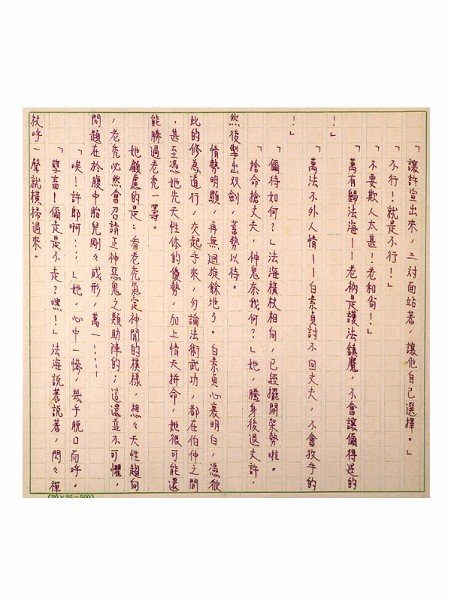 「讓許宣出來，三對面站著，讓他自己選擇。」
「不行！就是不行！」
「不要欺人太甚！老和尚！」
「萬有歸法海！——老衲是護法鎮魔，不會讓偏得逞的
！」
「萬法不外人情——白素貞討不回丈夫，不會放手的
！」
「偏待如何？」法海橫杖相向，已經擺開架勢啦。
「捨命搶丈夫，神鬼奈我何？」她，騰身後退丈許，
然後掣出双劍，蓄勢以待。
情勢明顯，再無迴旋餘地了。白素貞心裏明白，憑彼
此的修為道行，交起手來，勿論法術武功，都在伯仲之間
，甚至憑她先天性体的優勢，加上情天拼命，她很可能還
能勝過老禿一籌。
她顧慮的是：看老禿氣定神閒的模樣，想々天性趨向
，老禿必然會召請正神惡鬼之類助陣的；這還並不可懼，
問題在於腹中胎兒剛々成形，萬一……！
「唉！許郎啊！」她，心中一慘，幾乎脫口而呼。
「孽畜！偏走是不走？嘿！」法海說著說著，閃々禪
杖呼一聲就橫掃過來。
(20×25=500)